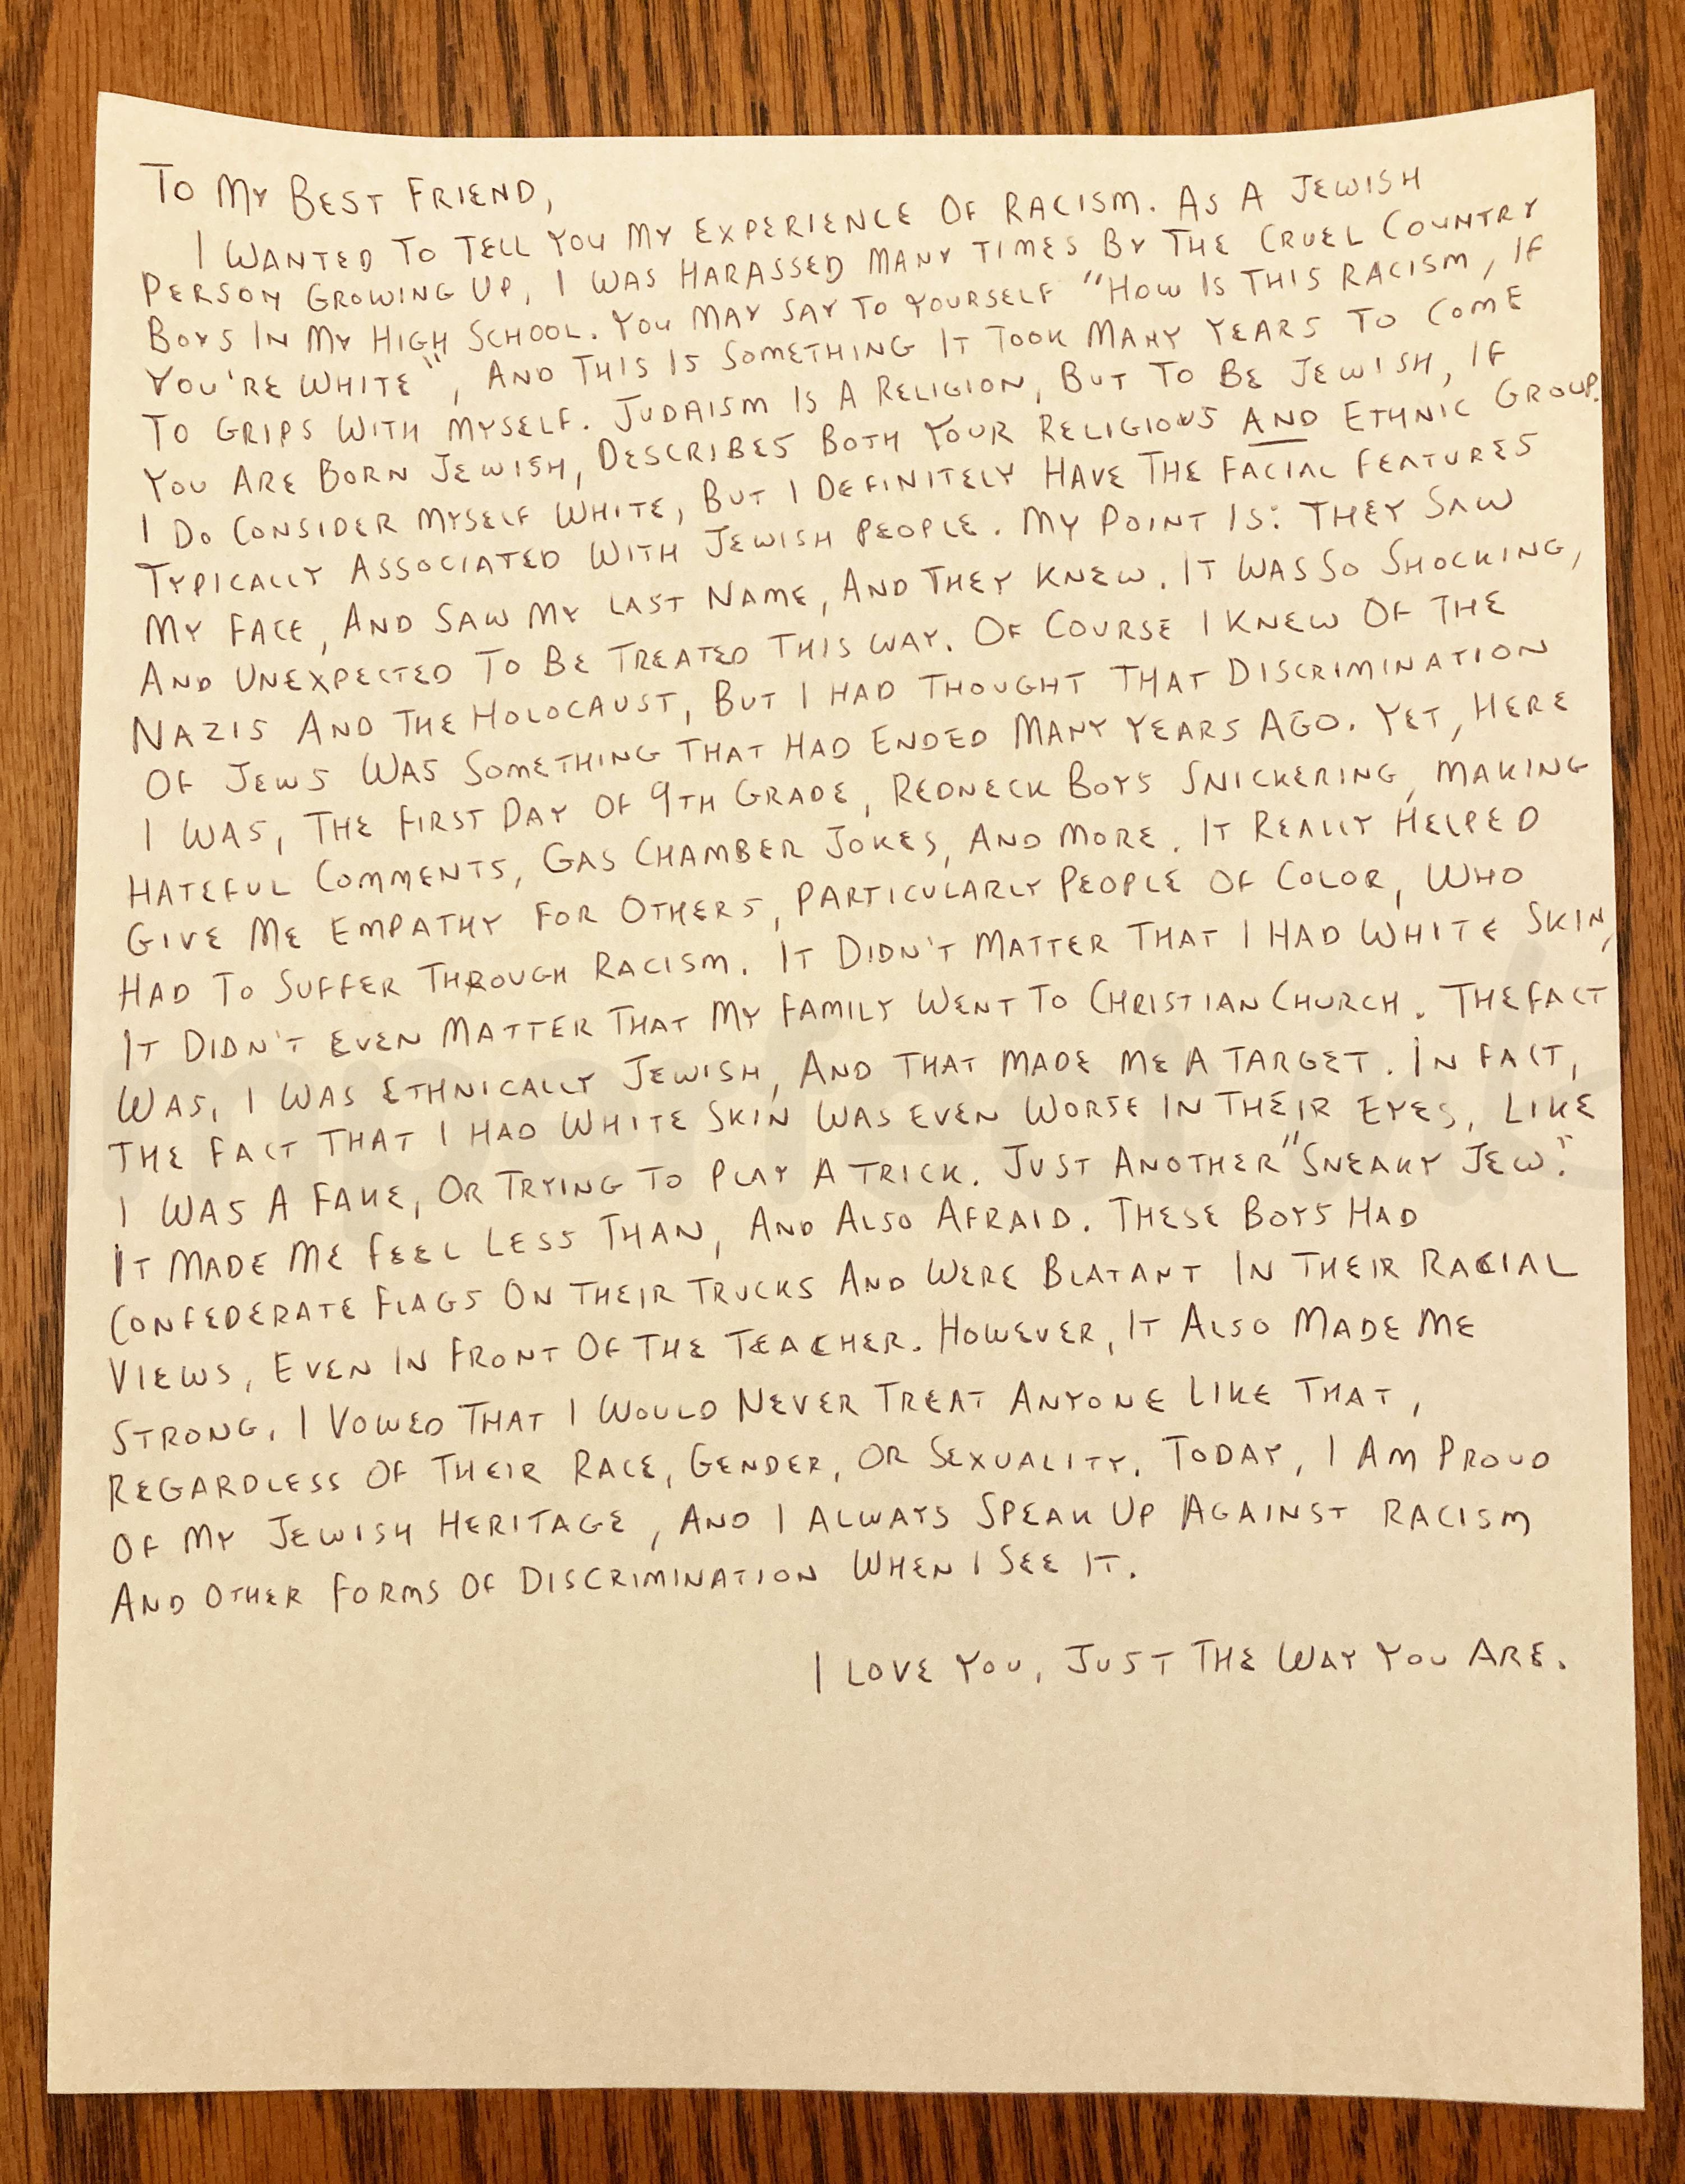 To My Best Friend,
I Wanted To Tell You My Experience Of Racism. As A Jewish
Person Growing Up, I Was Harassed Many Times By The Cruel Country
Boys In My High School. You May Say To Yourself "How Is This Racism, If
You're White", And This Is Something It Took Many Years To Come
To Grips With Myself. Judaism Is A Religion, But To Be Jewish, If
You Are Born Jewish, Describes Both Your Religious And Ethnic Group.
I Do Consider Myself White, But I Definitely Have The Facial Features
Typically Associated With Jewish People. My Point Is: They Saw
My Face, And Saw My Last Name, And They Knew. It Was So Shocking,
And Unexpected To Be Treated This Way. Of Course I Knew Of The
Nazis And The Holocaust, But I Had Thought That Discrimination
Of Jews Was Something That Had Ended Many Years Ago. Yet, Here
I Was, The First Day Of 9th Grade, Redneck Boys Snickering, Making
Hateful Comments, Gas Chamber Jokes, And More. It Really Helped
Give Me Empathy For Others, Particularly People Of Color, Who
Had To Suffer Through Racism. It Didn't Matter That I Had White Skin,
It Didn't Even Matter That My Family Went To Christian Church. The Fact
Was, I Was Ethnically Jewish, And That Made Me A Target. In Fact,
The Fact That I Had White Skin Was Even Worse In Their Eyes, Like
I Was A Fake, Or Trying To Play A Trick. Just Another "Sneaky Jew".
It Made Me Feel Less Than, And Also Afraid. These Boys Had
Confederate Flags On Their Trucks And Were Blatant In Their Racial
Views, Even In Front Of The Teacher. However, It Also Made Me
Strong. I Vowed That I Would Never Treat Anyone Like That,
Regardless Of Their Race, Gender, Or Sexuality. Today, I Am Proud
Of My Jewish Heritage, And I Always Speak Up Against Racism
And Other Forms Of Discrimination When I See It.
I Love You, Just The Way You Are.